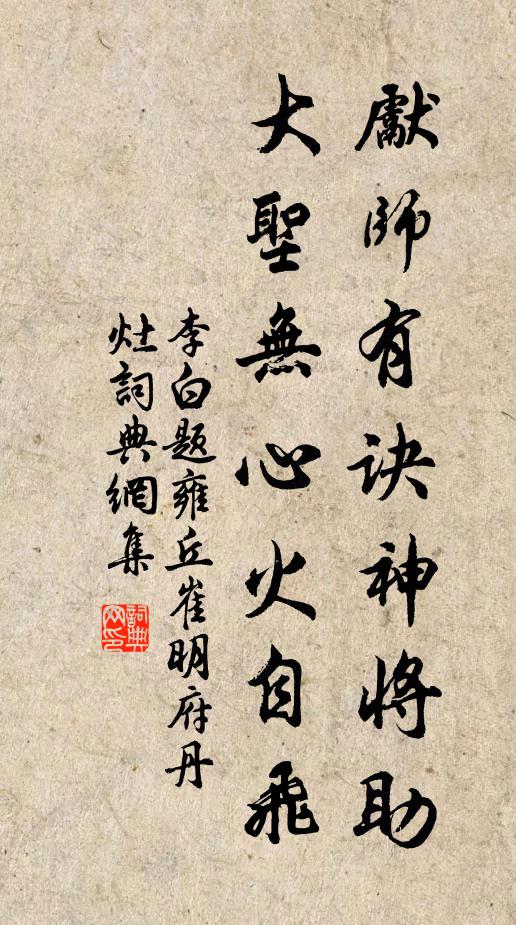 獻師有訣神將助
大聖無心火自飛
李白題雍丘崔明府丹
灶詞典網集
詞典
网印